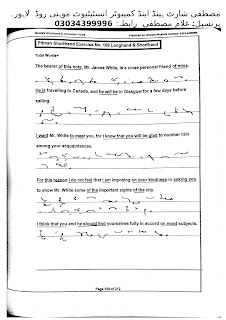 مصطفی شارٹ ہینڈ اینڈ کمپیوٹر انسٹیٹیوٹ موہنی روڈ لاہور۔
پرنسپل: غلام مصطفی رابطہ: 03034399996
Pitman Shorthand Exercise No. 109 Longhand & Shorthand
Total Words=
The bearer of this note, Mr. James White, is a close personal friend of mine.
He is travelling to Canada, and he will be in Glasgow for a few days before
sailing.
I want Mr. White to meet you, for I know that you will be glad to number him
among your acquaintances.
For this reason I do not feel that I am imposing on your kindness in asking you
to show Mr. White some of the important sights of the city.
I think that you and he should find yourselves fully in accord on most subjects.
Page 194 of 212